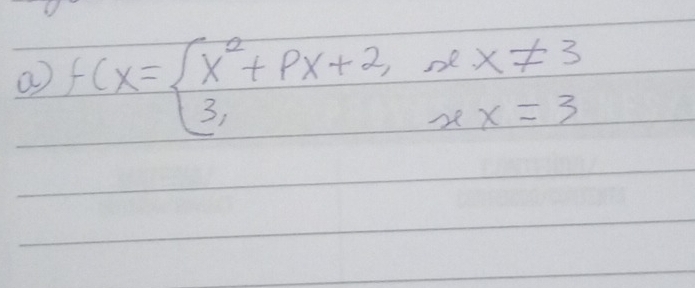 a) f(x = { x² + Px + 2, se x ≠ 3
3, se x = 3